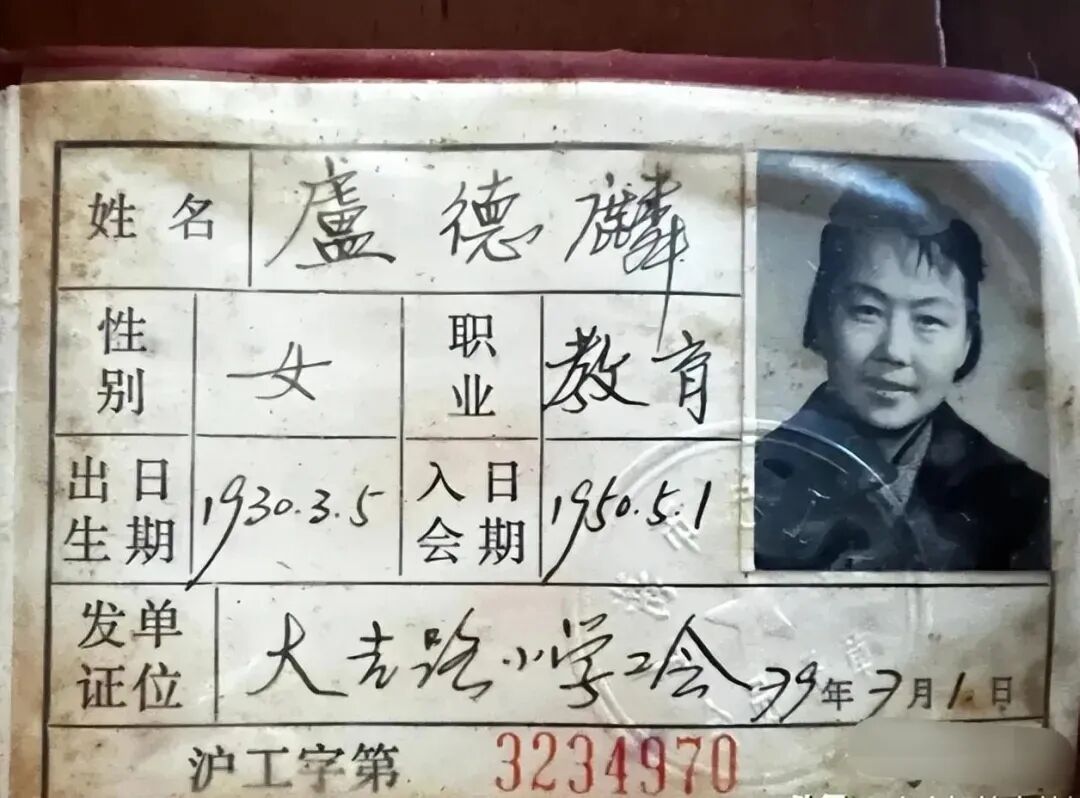 姓名 盧德麟
性别 女 职业 教育
出生日期 1930.3.5 入会日期 1950.5.1
发证单位 大吉路小学工会 79年7月1日
沪工字第 3234970